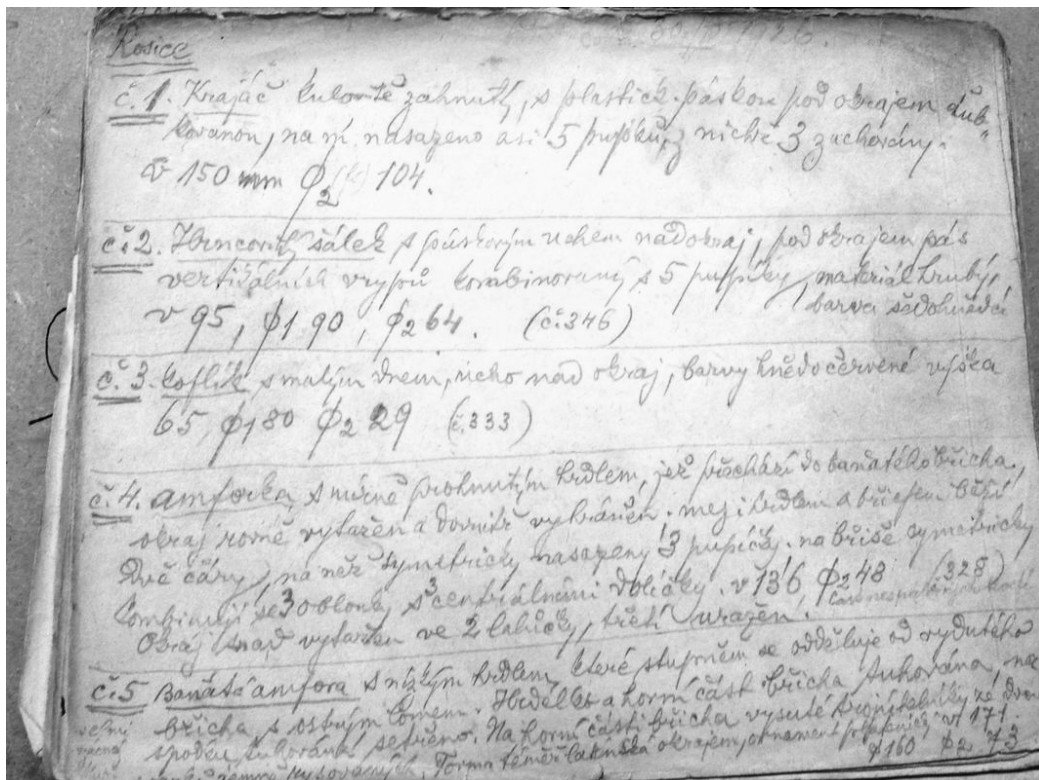 Rosice
č.1. Krajáč kulovitě zahnutý, s plastick. páskou pod okrajem důb
kovanou, na ní nasazeno asi 5 pupíků, z nichž 3 zachovány.
v 150 mm φ2 104.
č.2. Hrncovitý šálek s páskovým uchem nad okraj, pod okrajem pás
vertikálních vrypů kombinovaný s 5 pupíky, materiál hrubý,
barva šedohnědá
v 95, φ1 90, φ2 64. (č.346)
č.3. koflík s malým dnem, ucho nad okraj, barvy hnědočervené výška
65, φ1 80 φ2 29 (č.333)
č.4. amforka s mírně prohnutým hrdlem, jež přechází do baňatého břicha,
okraj rovně vytažen a dovnitř. mezi hrdlem a břichem běží
dvě čáry, na něž symetricky nasazeny 3 pupíčky. na břiše symetricky
kombinují se 3 oblouky s centrálními důlíčky. v 136, φ2 48 (328)
Okraj snad vytažen ve 2 laločky, třetí uražen.
č.5 Baňatá amfora s nízkým hrdlem, které stupněm se odděluje od vydutého
břicha, s ostrým lomem. Hrdélko a horní část břicha tuhována, na
spodku tuhování setřeno. Na horní části břicha vysuté trojúhelníky ze dvou
Forma téměř okrajem, ornament v 171.
φ160 φ2 73